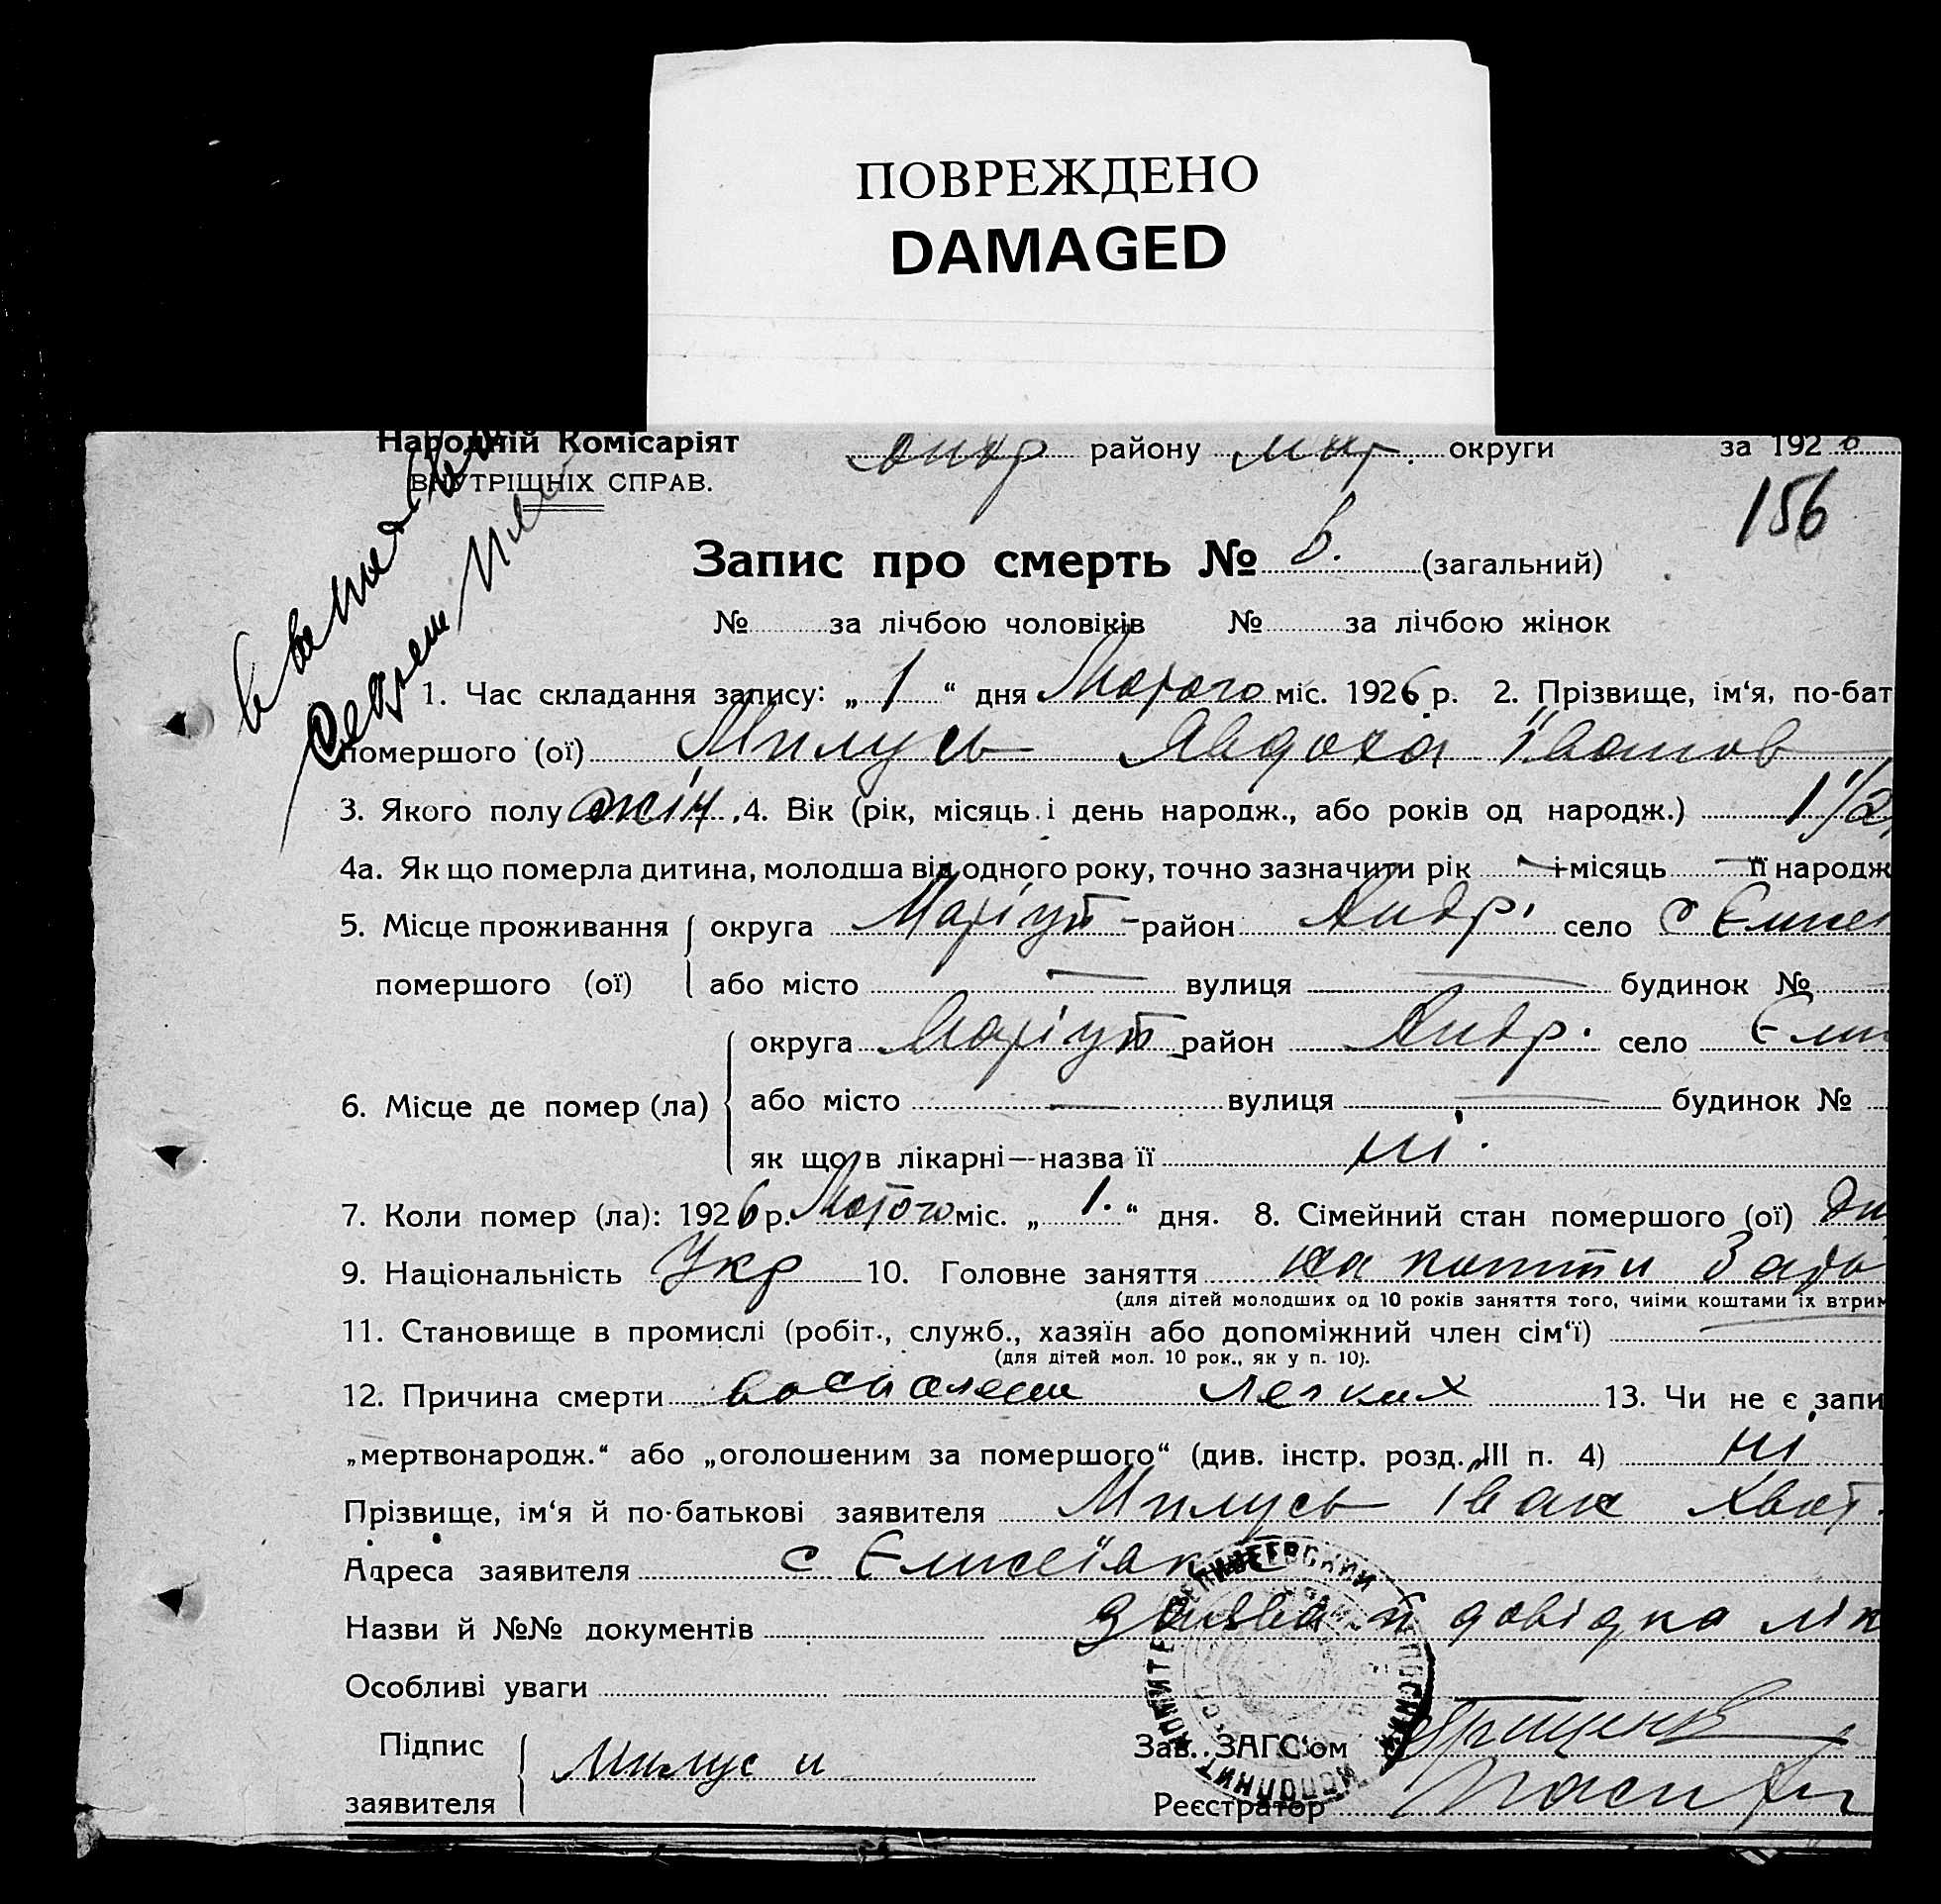 ПОВРЕЖДЕНО
DAMAGED
Народній Комісаріят
ВНУТРІШНІХ СПРАВ.
Андр району Мар. округи за 1926
156
Запис про смерть № 6. (загальний)
№ за лічбою чоловіків № за лічбою жінок
1. Час складання запису: „ 1 “ дня Лютого міс. 1926 р. 2. Прізвище, ім‘я, по-бат
помершого (ої) Милусь Явдоха Іванов
3. Якого полу жін, 4. Вік (рік, місяць і день народж., або років од народж.) 1 1/2
4а. Як що померла дитина, молодша від одного року, точно зазначити рік — і місяць — її народж
5. Місце проживання округа Маріуп- район Андр. село с Єлисе
помершого (ої) або місто — вулиця — будинок №
6. Місце де помер (ла) округа Маріуп район Андр. село Єли
або місто — вулиця — будинок №
як що в лікарні—назва її ні.
7. Коли помер (ла): 1926 р. Лютого міс. „ 1. “ дня. 8. Сімейний стан помершого (ої) ди
9. Національність Укр 10. Головне заняття
(для дітей молодших од 10 років заняття того, чиїми коштами їх втрим
11. Становище в промислі (робіт., служб., хазяїн або допоміжний член сім‘ї) —
(для дітей мол. 10 рок., як у п. 10).
12. Причина смерти воспалени легких 13. Чи не є запи
„мертвонародж.“ або „оголошеним за помершого“ (див. інстр. розд. III п. 4) ні
Прізвище, ім‘я й по-батькові заявителя Милусь Іван
Адреса заявителя с Єлисеївк
Назви й №№ документів заява й довідка лік
Особливі уваги
Підпис
заявителя
Милус и
Зав. ЗАГС‘ом
Реєстратор